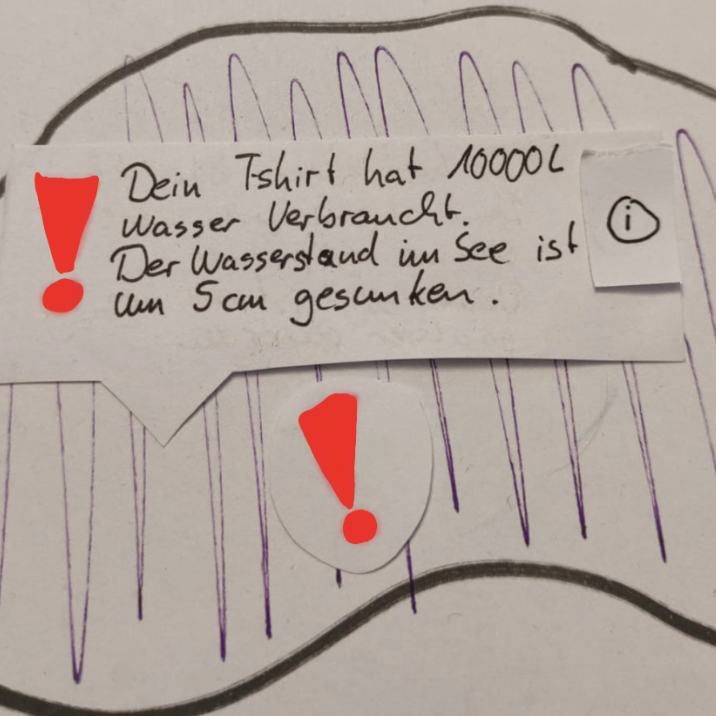 Dein T-shirt hat 10000L
wasser Verbraucht.
Der Wasserstand im See ist
um 5cm gesunken.
i